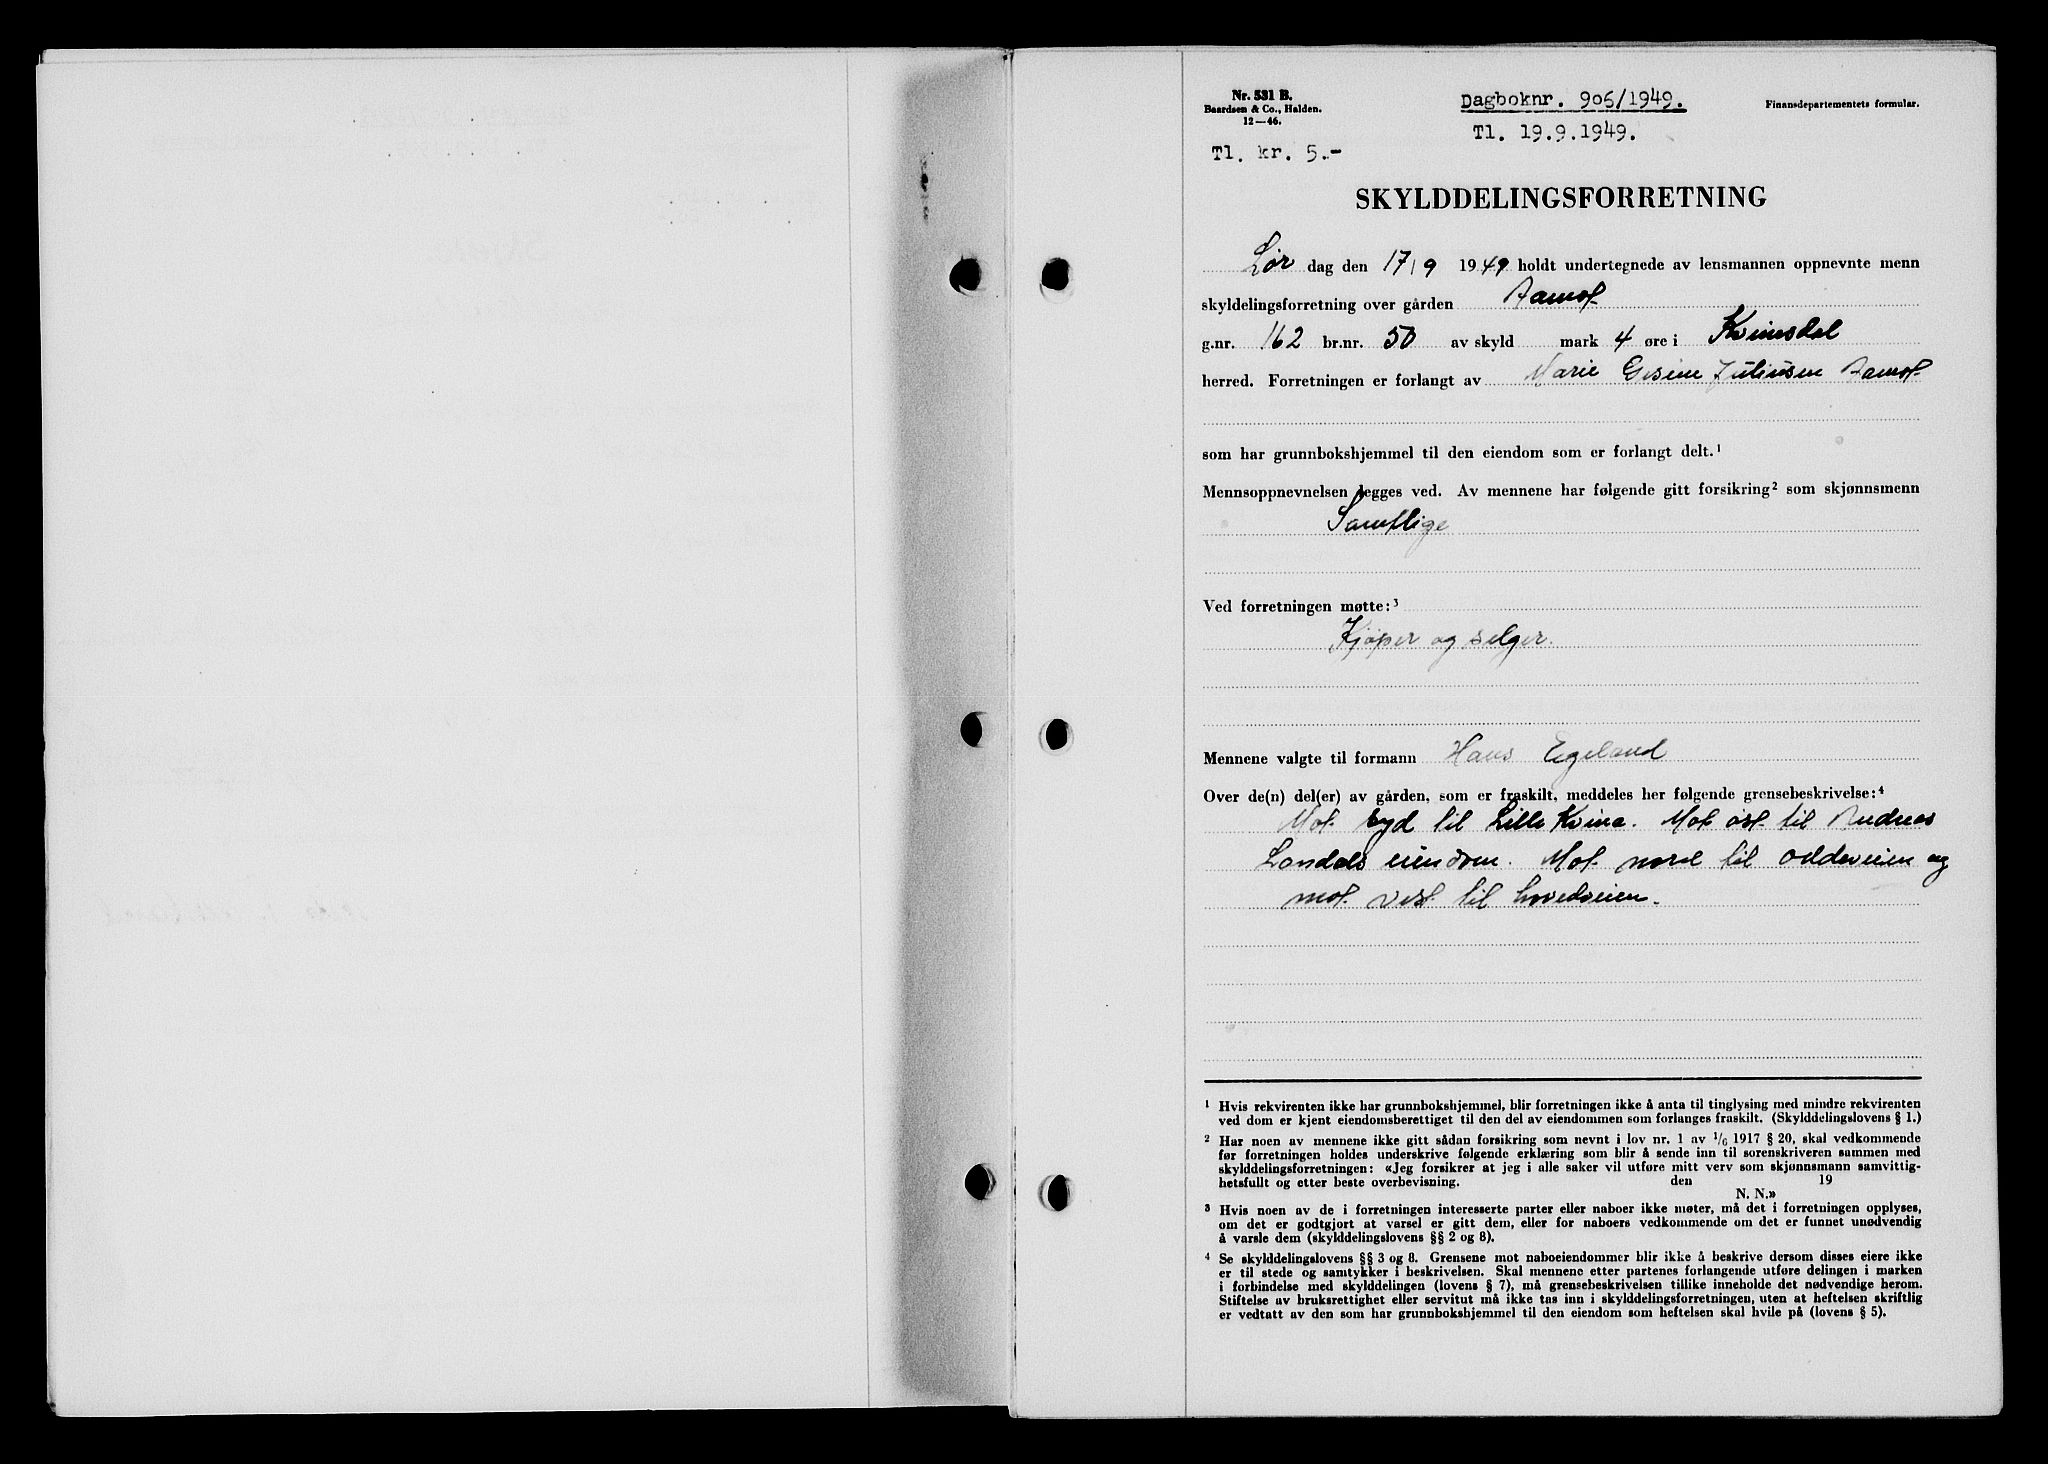 Nr. 531 B.
Baardsen & Co., Halden.
12—46.
Dagboknr. 906/1949.
Finansdepartementets formular.
Tl. 19.9.1949.
Tl. kr. 5.-
SKYLDDELINGSFORRETNING
Lør dag den 17/9 1949 holdt undertegnede av lensmannen oppnevnte menn
skyldelingsforretning over gården Aamot
g.nr. 162 br.nr. 50 av skyld mark 4 øre i Kvinesdal
herred. Forretningen er forlangt av Marie Gesine Juliussen Aamot
som har grunnbokshjemmel til den eiendom som er forlangt delt.¹
Mennsoppnevnelsen legges ved. Av mennene har følgende gitt forsikring² som skjønnsmenn
Samtlige
Ved forretningen møtte:³
Kjøper og selger.
Mennene valgte til formann Hans Egeland
Over de(n) del(er) av gården, som er fraskilt, meddeles her følgende grensebeskrivelse:⁴
Mot syd til Lille Kvina. Mot øst til Andreas
Landals eiendom. Mot nord til Oddeveien og
mot vest til hovedveien.
¹ Hvis rekvirenten ikke har grunnbokshjemmel, blir forretningen ikke å anta til tinglysing med mindre rekvirenten
ved dom er kjent eiendomsberettiget til den del av eiendommen som forlanges fraskilt. (Skylddelingslovens § 1.)
² Har noen av mennene ikke gitt sådan forsikring som nevnt i lov nr. 1 av 1/6 1917 § 20, skal vedkommende
før forretningen holdes underskrive følgende erklæring som blir å sende inn til sorenskriveren sammen med
skylddelingsforretningen: «Jeg forsikrer at jeg i alle saker vil utføre mitt verv som skjønnsmann samvittig-
hetsfullt og etter beste overbevisning. den 19
N. N.»
³ Hvis noen av de i forretningen interesserte parter eller naboer ikke møter, må det i forretningen opplyses,
om det er godtgjort at varsel er gitt dem, eller for naboers vedkommende om det er funnet unødvendig
å varsle dem (skylddelingslovens §§ 2 og 8).
⁴ Se skylddelingslovens §§ 3 og 8. Grensene mot naboeiendommer blir ikke å beskrive dersom disses eiere ikke
er til stede og samtykker i beskrivelsen. Skal mennene etter partenes forlangende utføre delingen i marken
i forbindelse med skylddelingen (lovens § 7), må grensebeskrivelsen tillike inneholde det nødvendige herom.
Stiftelse av bruksrettighet eller servitut må ikke tas inn i skylddelingsforretningen, uten at heftelsen skriftlig
er vedtatt av den som har grunnbokshjemmel til den eiendom som heftelsen skal hvile på (lovens § 5).